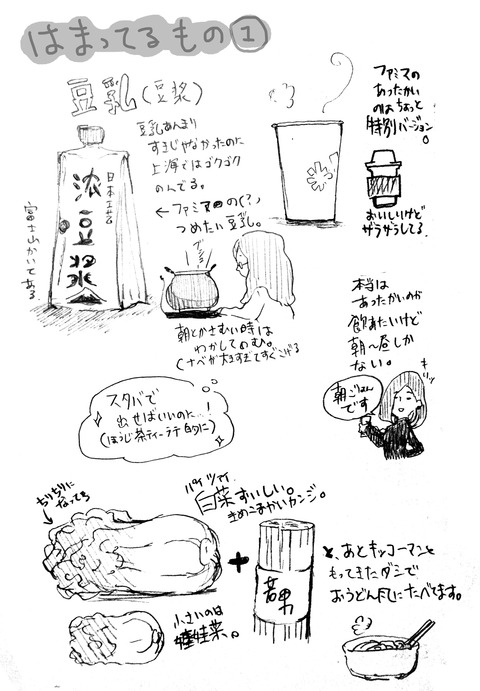 はまってるもの①
豆乳(豆浆)
豆乳あんまり
すきじゃなかったのに
上海ではゴクゴク
のんでる。
←ファミマの(?)
つめたい豆乳。
日本工芸
浓豆浆
富士山かいてある
ファミマの
あったかい
のはちょっと
特別バージョン。
おいしいけど
ザラザラしてる
朝とかさむい時は
わかしてのむ。
(ナベが大きすぎてすぐこげる
本当は
あったかいのが
飲みたいけど
朝〜昼しか
ない。
キリッ
朝ごはん
です
スタバで
出せばいいのに…!
(ほうじ茶ティーラテ的に)
ちりちりに
なってる
パイツァイ
白菜すいしい。
きめこまかいカンジ。
小さいのは
娃娃菜。
+
と、あとキッコーマンと
もってきたダシで
おうどん風にたべてます。